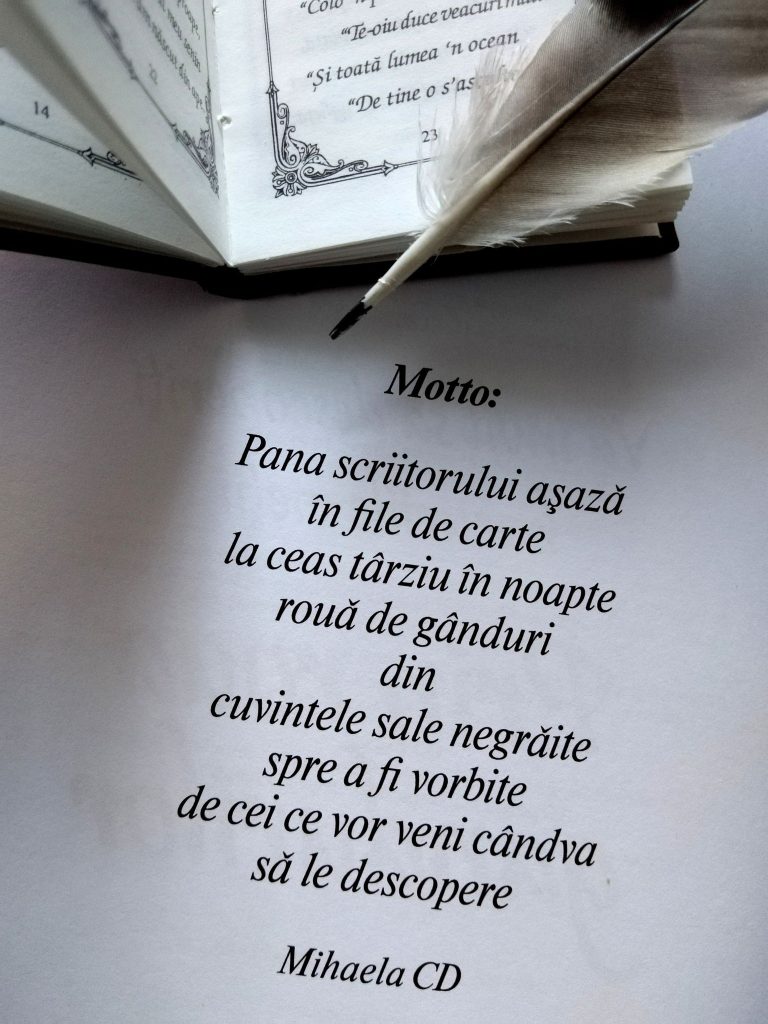 "Te-oiu duce veacuri
"Și toată lumea 'n ocean
"De tine o
23
14
22
Motto:
Pana scriitorului așază
în file de carte
la ceas târziu în noapte
rouă de gânduri
din
cuvintele sale negrăite
spre a fi vorbite
de cei ce vor veni cândva
să le descopere
Mihaela CD